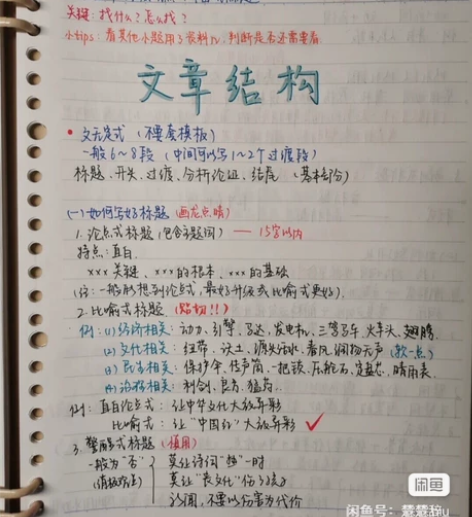 关键:找什么?怎么找?
小tips:看其他小题用了资料N,判断是否还需要看
文章结构
• 文无定式(不要套模板)
一般6~8段(中间可以写1~2个过渡段)
标题、开头、过渡、分析论证、结尾(基本部分)
(一)如何写好标题 画龙点睛
1. 论点式标题(包含主题词)——15字以内
特点:直白.
×××关键、×××的根本、×××的基础
(注:一般形想到论点式,最好升级成比喻式更好).
2. 比喻式标题(贴切!!)
例:(1)经济相关:动力、引擎、马达、发电机、三驾马车、火车头、翅膀
(2)文化相关:纽带、沃土、源头活水、春风、润物无声(软一点)
(3)民生相关:保护伞、传声筒、一把锁、压舱石、定盘芯、晴雨表
(4)治理相关:利剑、良方、猛药
例:直白论点式:让中华文化大放异彩
比喻式:让"中国红"大放异彩 ✓
3. 警醒式标题(慎用)
一般为"否" 莫让诗词"热"一时
莫让"丧文化"伤了孩子
不要以伤害为代价
闲鱼
闲鱼号: